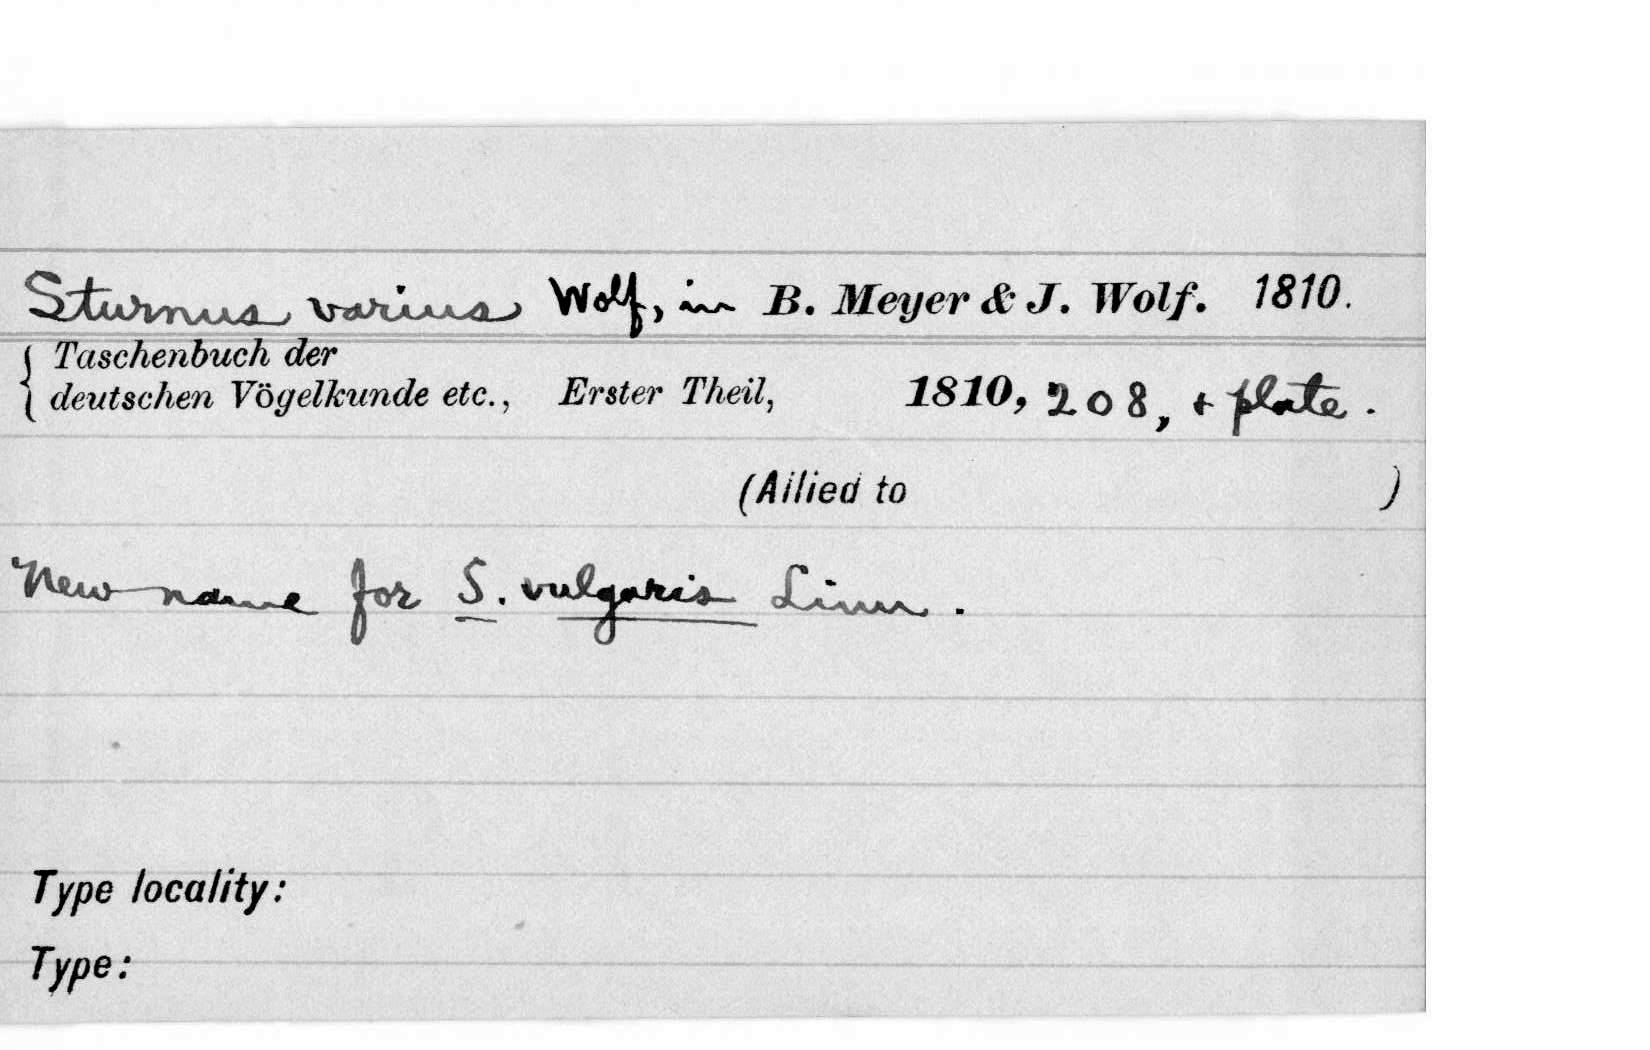 Sturnus varius Wolf, in B. Meyer & J. Wolf. 1810.
{ Taschenbuch der
deutschen Vögelkunde etc., Erster Theil, 1810, 208, + plate.
(Allied to )
New name for S. vulgaris Linn.
Type locality:
Type: